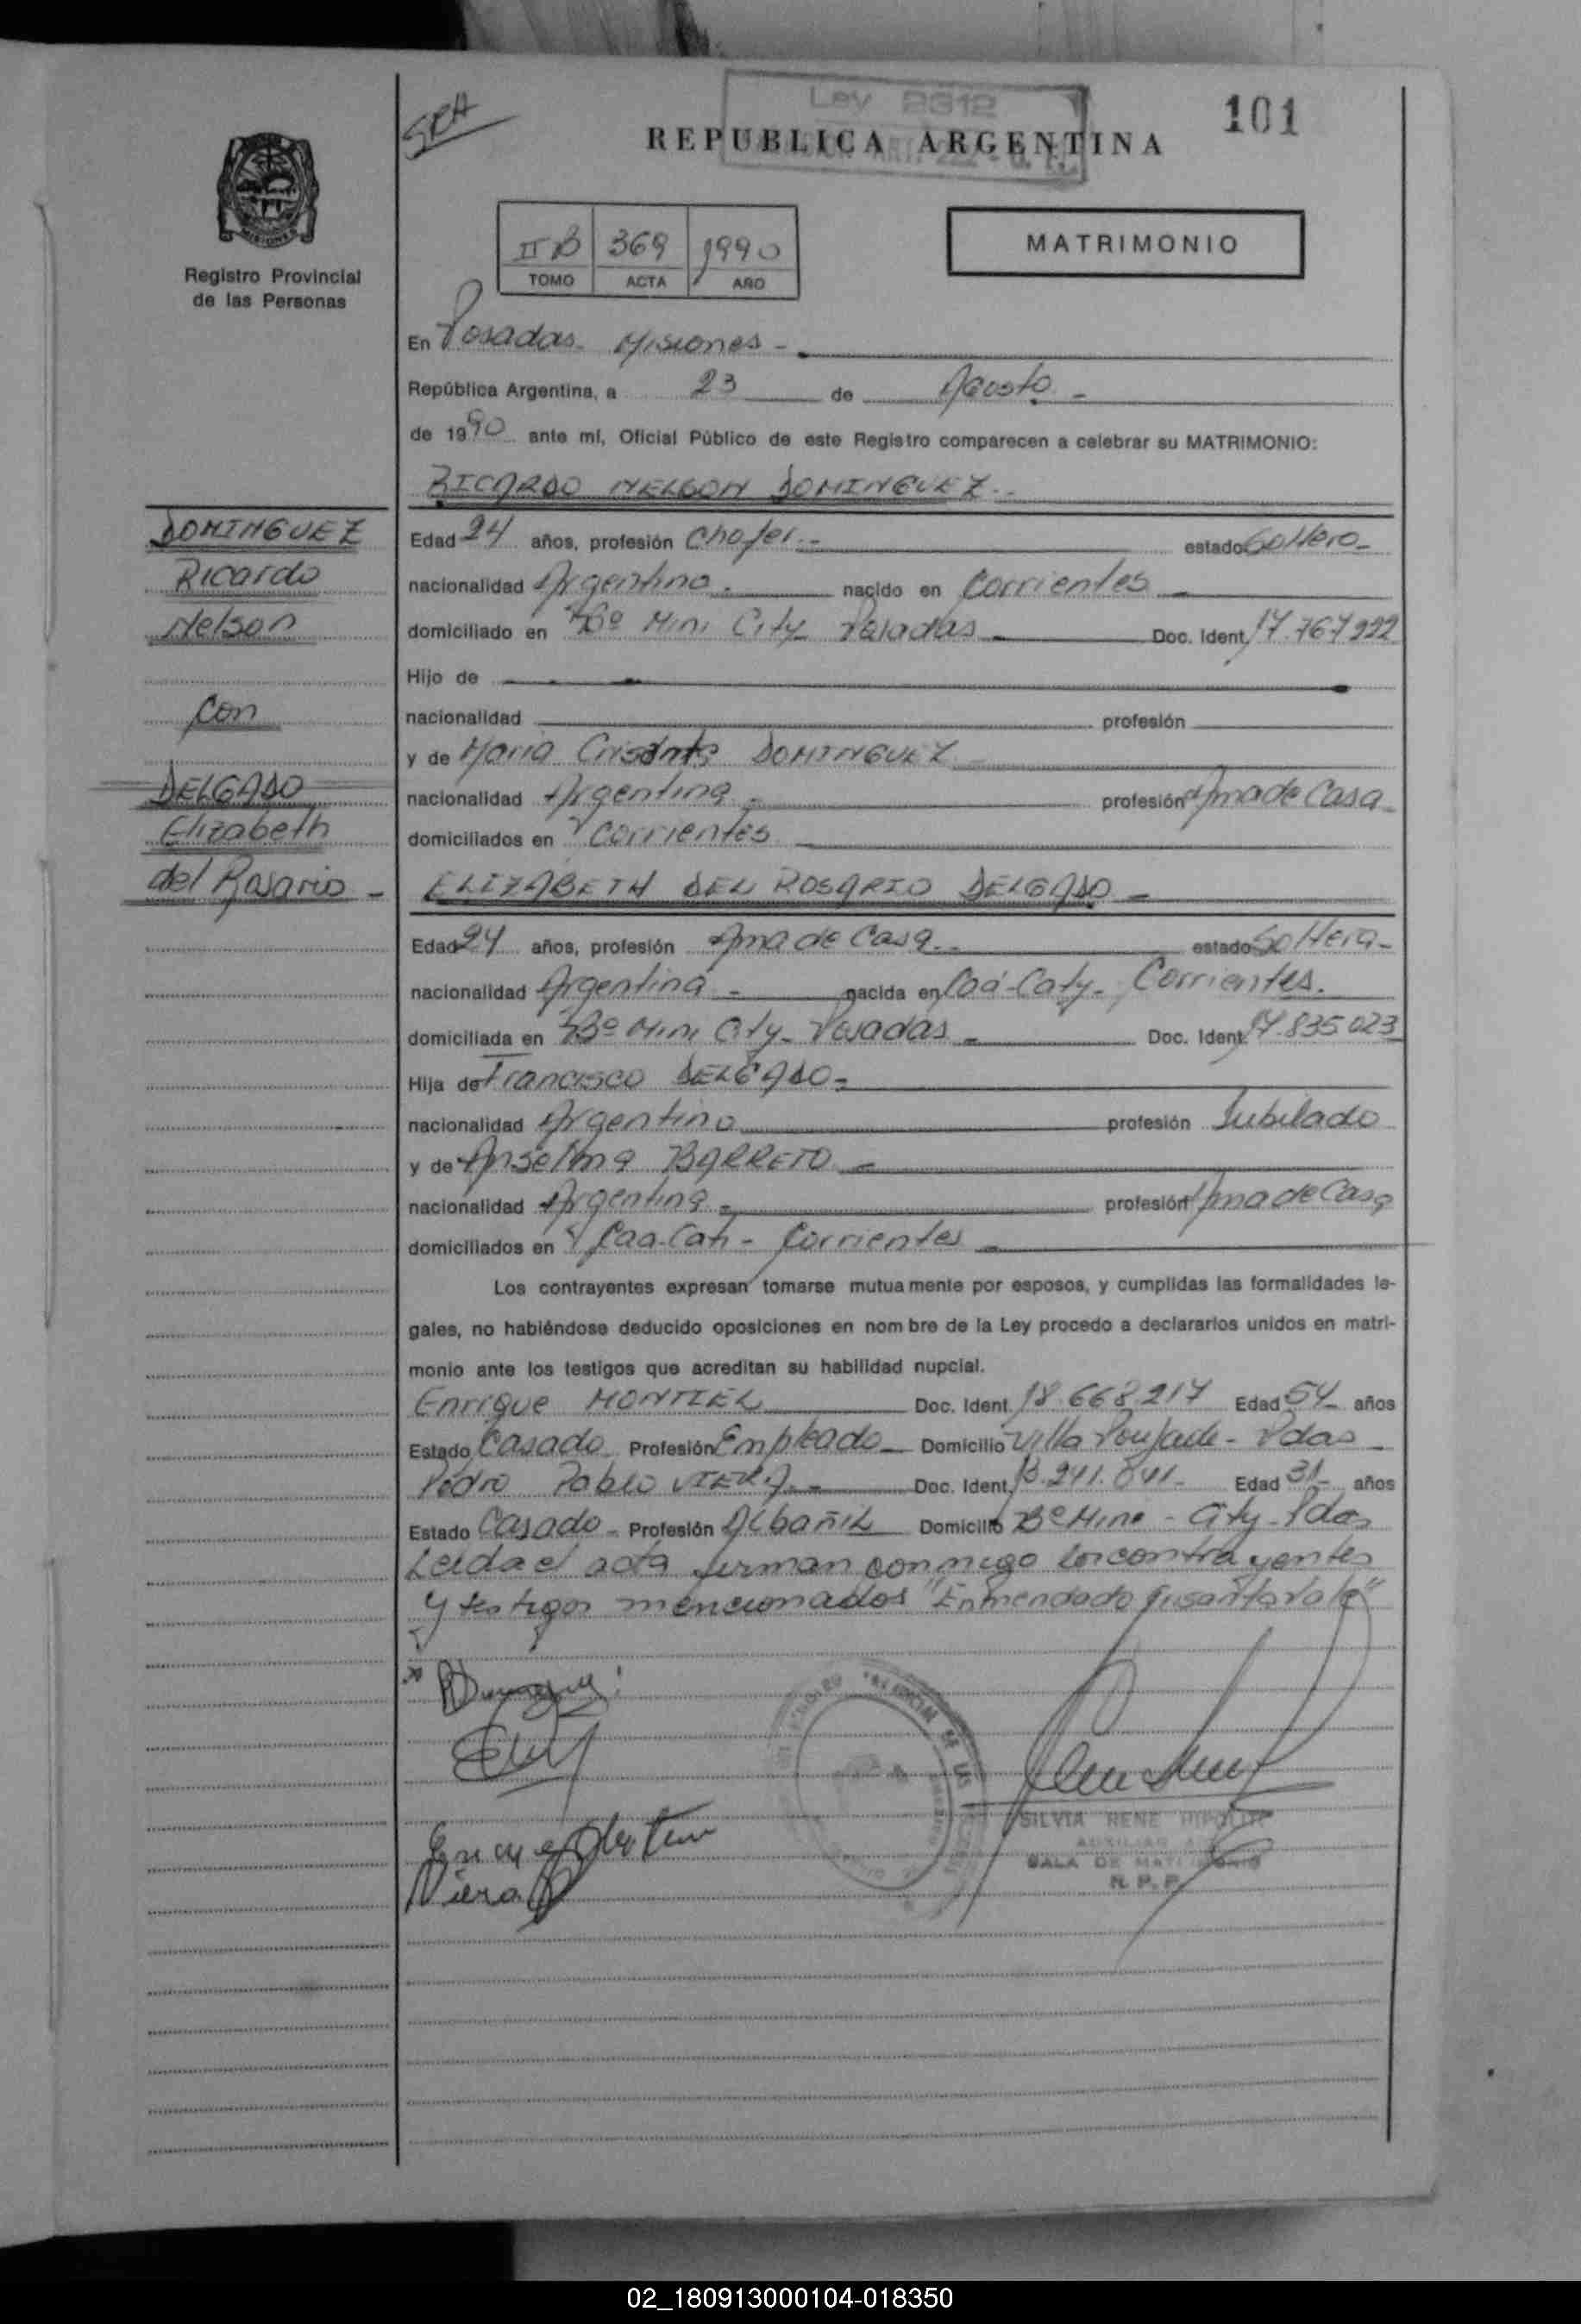 SRA
Ley 2312
101
REPUBLICA ARGENTINA
MISIONES
Registro Provincial
de las Personas
II B 369 1990
TOMO ACTA AÑO
MATRIMONIO
En Posadas - Misiones -
República Argentina, a 23 de Agosto -
de 1990 ante mí, Oficial Público de este Registro comparecen a celebrar su MATRIMONIO:
RICARDO NELSON DOMINGUEZ.-
DOMINGUEZ
Ricardo
Nelson
Con
DELGADO
Elizabeth
del Rosario -
Edad 24 años, profesión Chofer.- estado Soltero-
nacionalidad Argentino.- nacido en Corrientes -
domiciliado en Bº Mini City Posadas - Doc. Ident. 17.767.922
Hijo de
nacionalidad profesión
y de Maria DOMINGUEZ -
nacionalidad Argentina - profesión Ama de Casa-
domiciliados en Corrientes
ELIZABETH DEL ROSARIO DELGADO -
Edad 24 años, profesión Ama de Casa.- estado Soltera-
nacionalidad Argentina - nacida en Caá-Caty- Corrientes.
domiciliada en Bº Mini City- Posadas - Doc. Ident. 17.835.023
Hija de Francisco DELGADO-
nacionalidad Argentino profesión Jubilado
y de Anselma BARRETO -
nacionalidad Argentina - profesión Ama de Casa
domiciliados en Caa-Cati - Corrientes -
Los contrayentes expresan tomarse mutuamente por esposos, y cumplidas las formalidades le-
gales, no habiéndose deducido oposiciones en nombre de la Ley procedo a declararlos unidos en matri-
monio ante los testigos que acreditan su habilidad nupcial.
Enrique MONTIEL Doc. Ident. 18.668.217 Edad 54 años
Estado Casado Profesión Empleado - Domicilio Villa Poujade - Pdas -
Pedro Pablo VIERA.- Doc. Ident. 13.241.041- Edad 31 años
Estado Casado - Profesión Albañil Domicilio Bº Mini - City - Pdas
Leida el acta firman conmigo los contrayentes
y testigos mencionados "Enmendado
Viera
SILVIA RENE HIPOLITO
AUXILIAR
SALA DE MATRIMONIO
R. P. P.
02_180913000104-018350